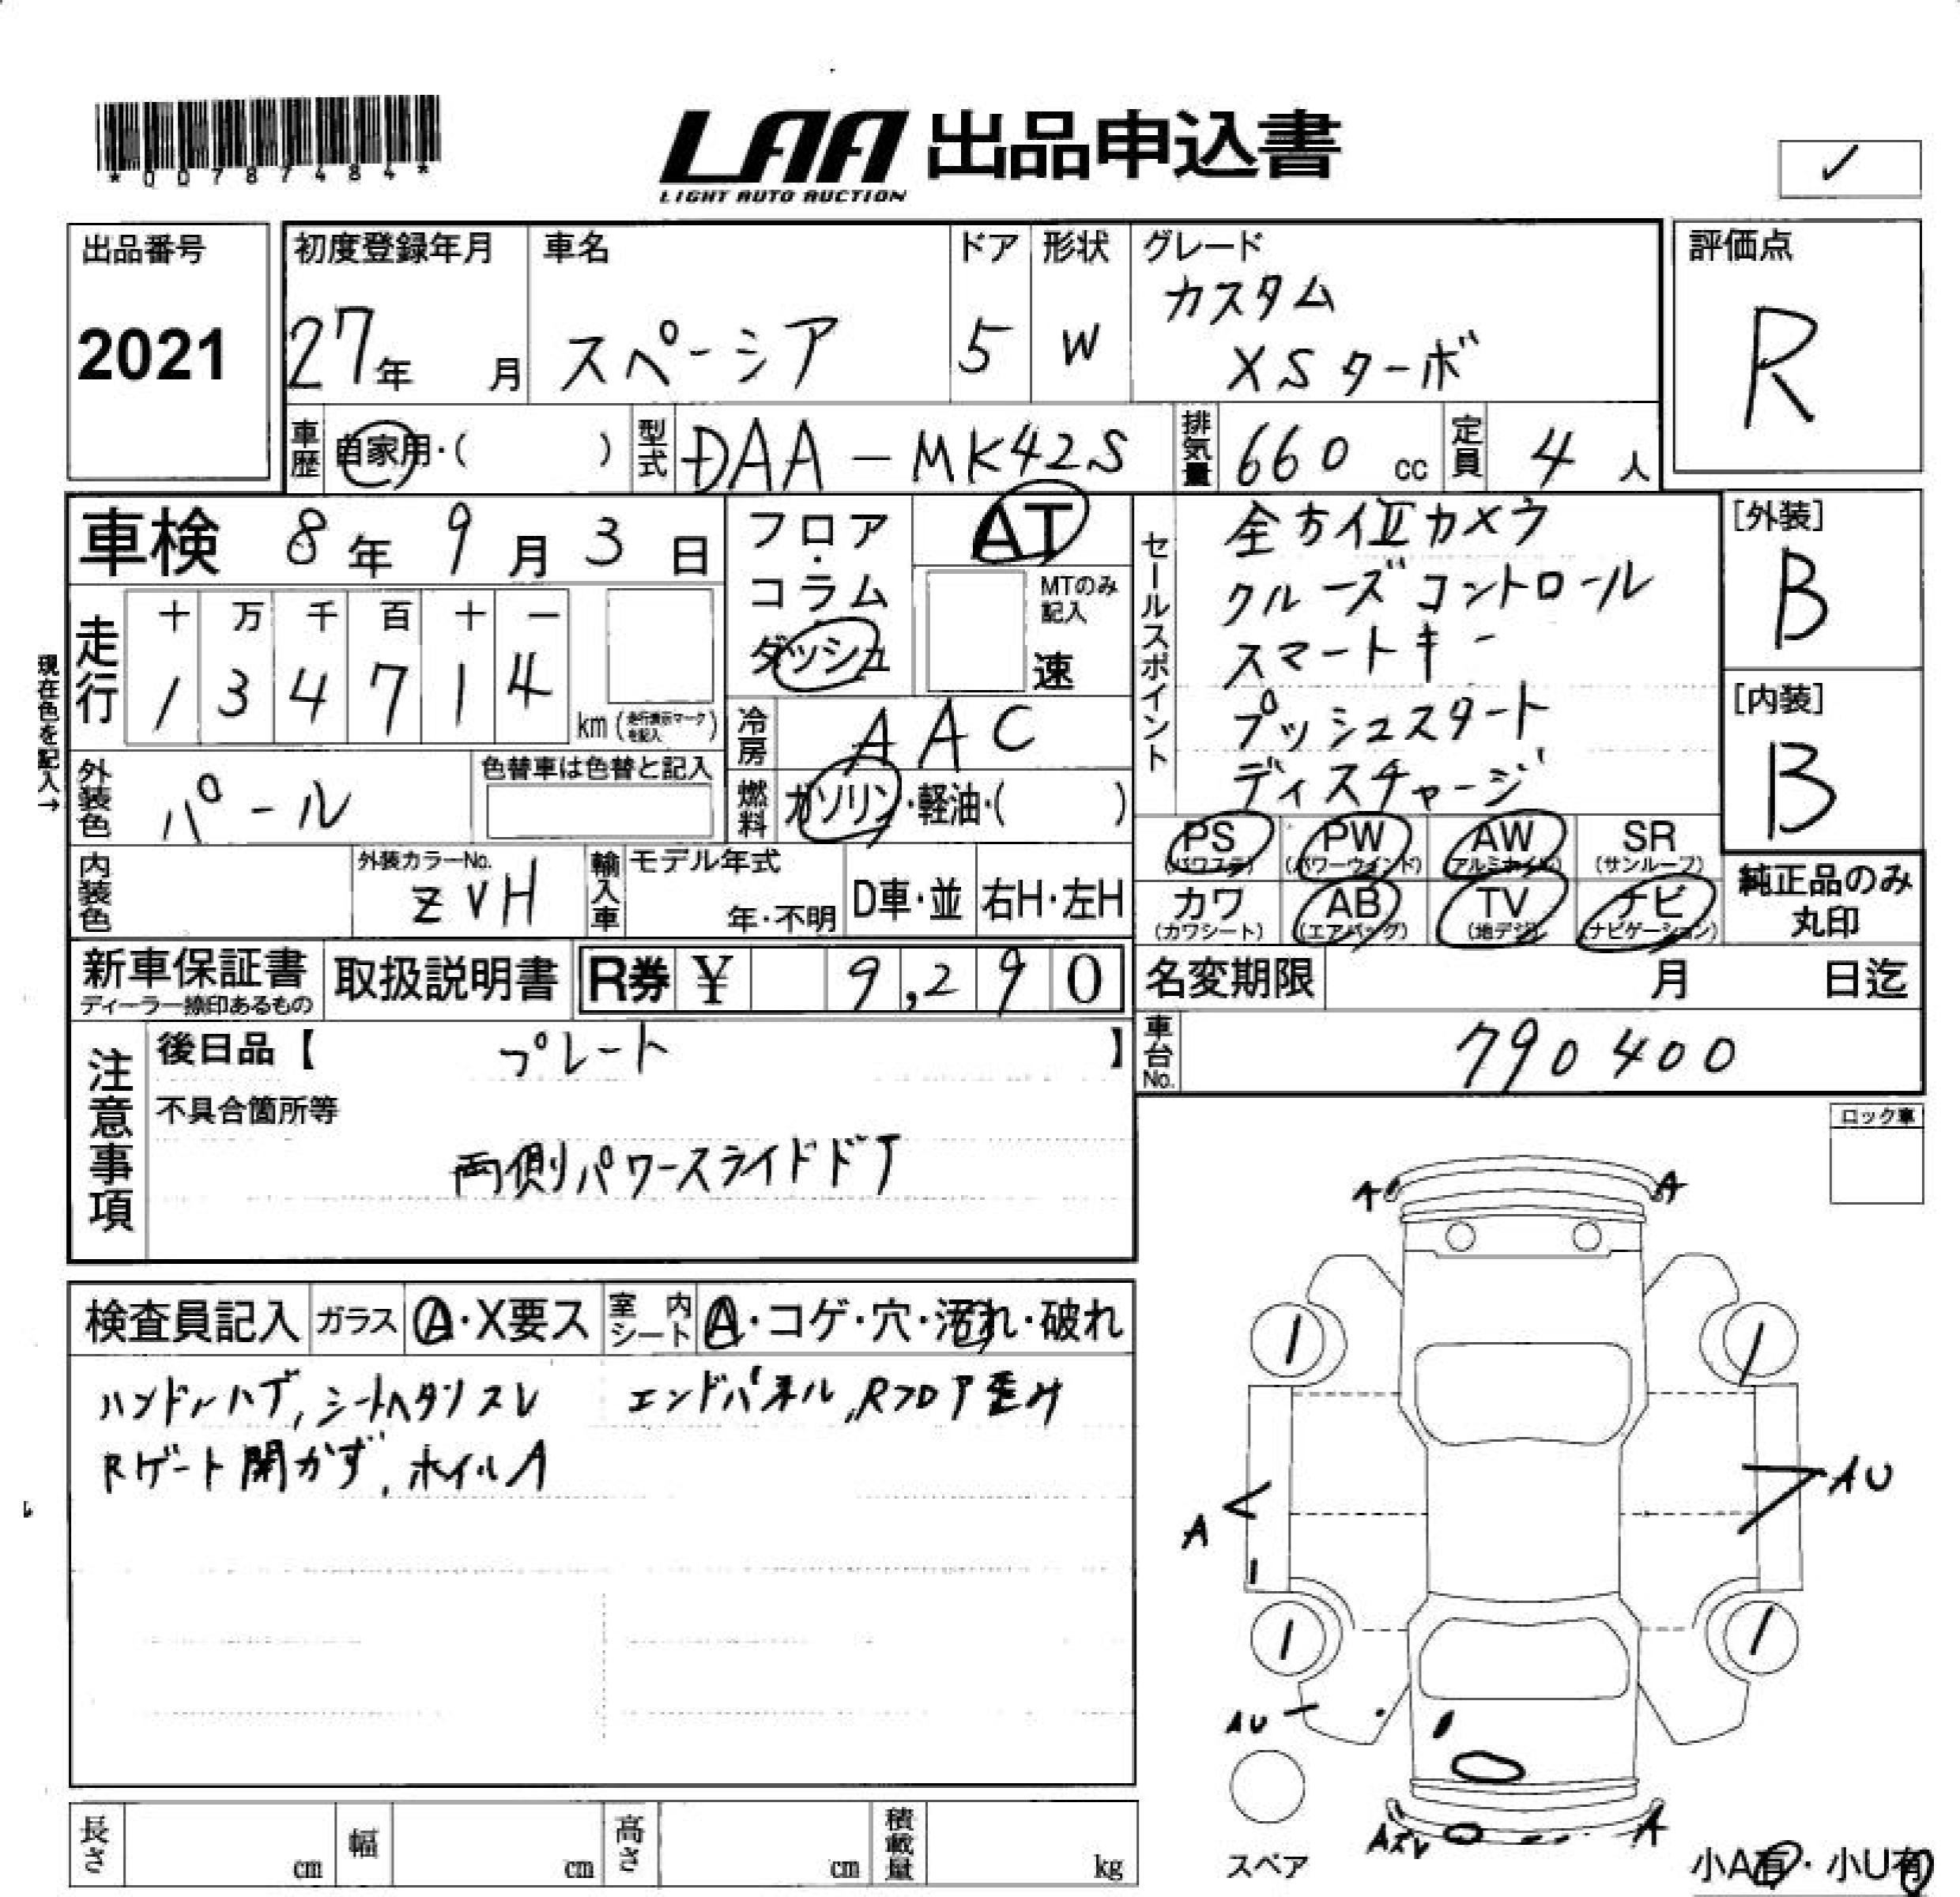 *00787484*
LAA 出品申込書
LIGHT AUTO AUCTION
✓
出品番号
2021
初度登録年月
27年 月
車名
スペーシア
ドア
5
形状
W
グレード
カスタム
XSターボ
評価点
R
車歴 自家用・( )
型式 DAA-MK42S
排気量 660 cc
定員 4 人
車検 8年 9月 3日
フロア・コラム
ダッシュ
AT
MTのみ
記入
速
セールスポイント
全方位カメラ
クルーズコントロール
スマートキー
プッシュスタート
ディスチャージ
[外装]
B
[内装]
B
現在色を記入→
走行
十 万 千 百 十 一
1 3 4 7 1 4
km (走行表示マークを記入)
冷房 AAC
外装色 パール
色替車は色替と記入
燃料 ガソリン・軽油・( )
PS (パワステ)
PW (パワーウインド)
AW (アルミホイル)
SR (サンルーフ)
カワ (カワシート)
AB (エアバッグ)
TV (地デジ)
ナビ (ナビゲーション)
純正品のみ
丸印
内装色
外装カラーNo.
ZVH
輸入車
モデル年式
年・不明
D車・並
右H・左H
新車保証書
ディーラー捺印あるもの
取扱説明書
R券 ¥ 9,290
名変期限 月 日迄
車台No. 790400
注意事項
後日品【 プレート 】
不具合箇所等
両側パワースライドドア
ロック車
検査員記入
ガラス A・X要ス
室内シート A・コゲ・穴・汚れ・破れ
ハンドルハゲ, シートヘタリスレ
エンドパネル, Rフロア歪み
Rゲート開かず, ホイルA
A A
A
AU
AU
A
スペア
小A有・小U有
長さ cm
幅 cm
高さ cm
積載量 kg